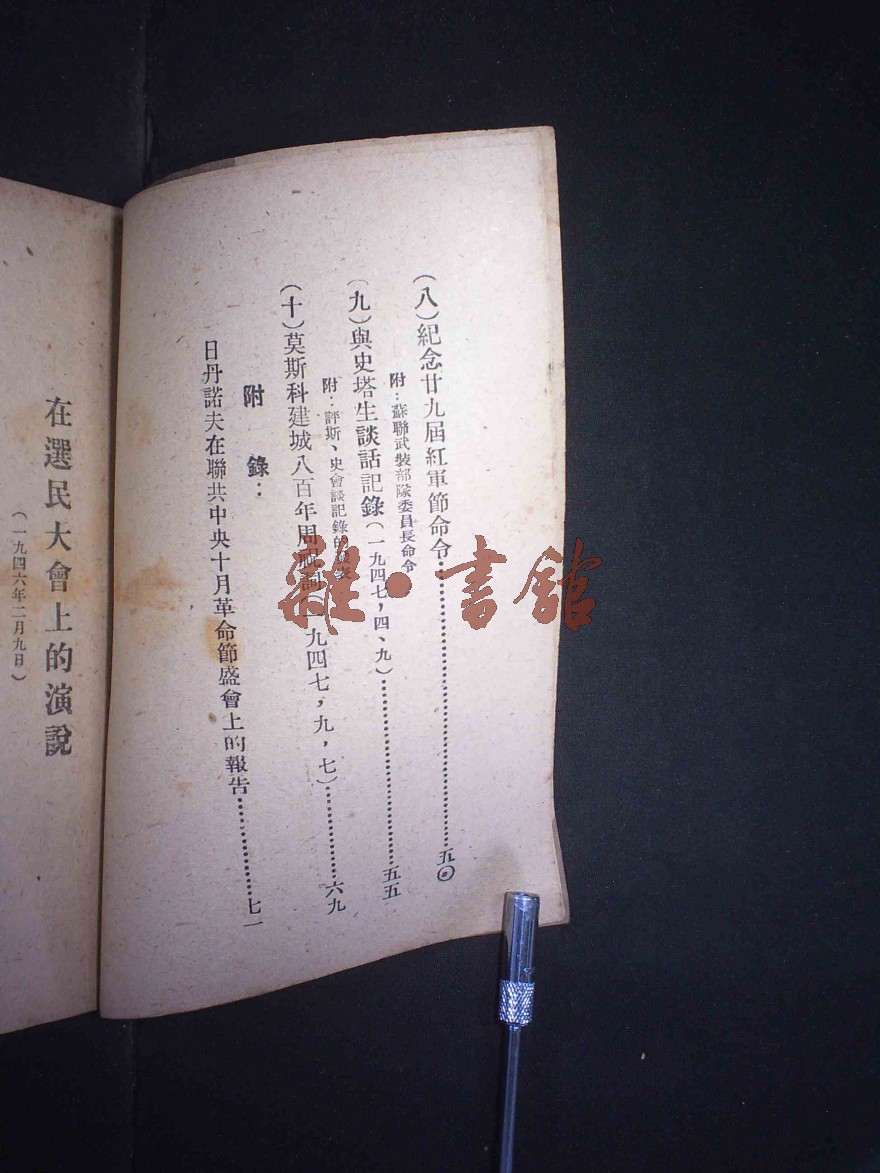 (八)紀念廿九屆紅軍節命令……五〇
附:蘇聯武裝部隊委員長命令
(九)與史塔生談話記錄(一九四七,四、九)……五五
附:評斯、史會談記錄的發表
(十)莫斯科建城八百年周祝詞(一九四七,九,七)……六九
附 錄:
日丹諾夫在聯共中央十月革命節盛會上的報告……七一
在選民大會上的演說
(一九四六年二月九日)
雜·書館